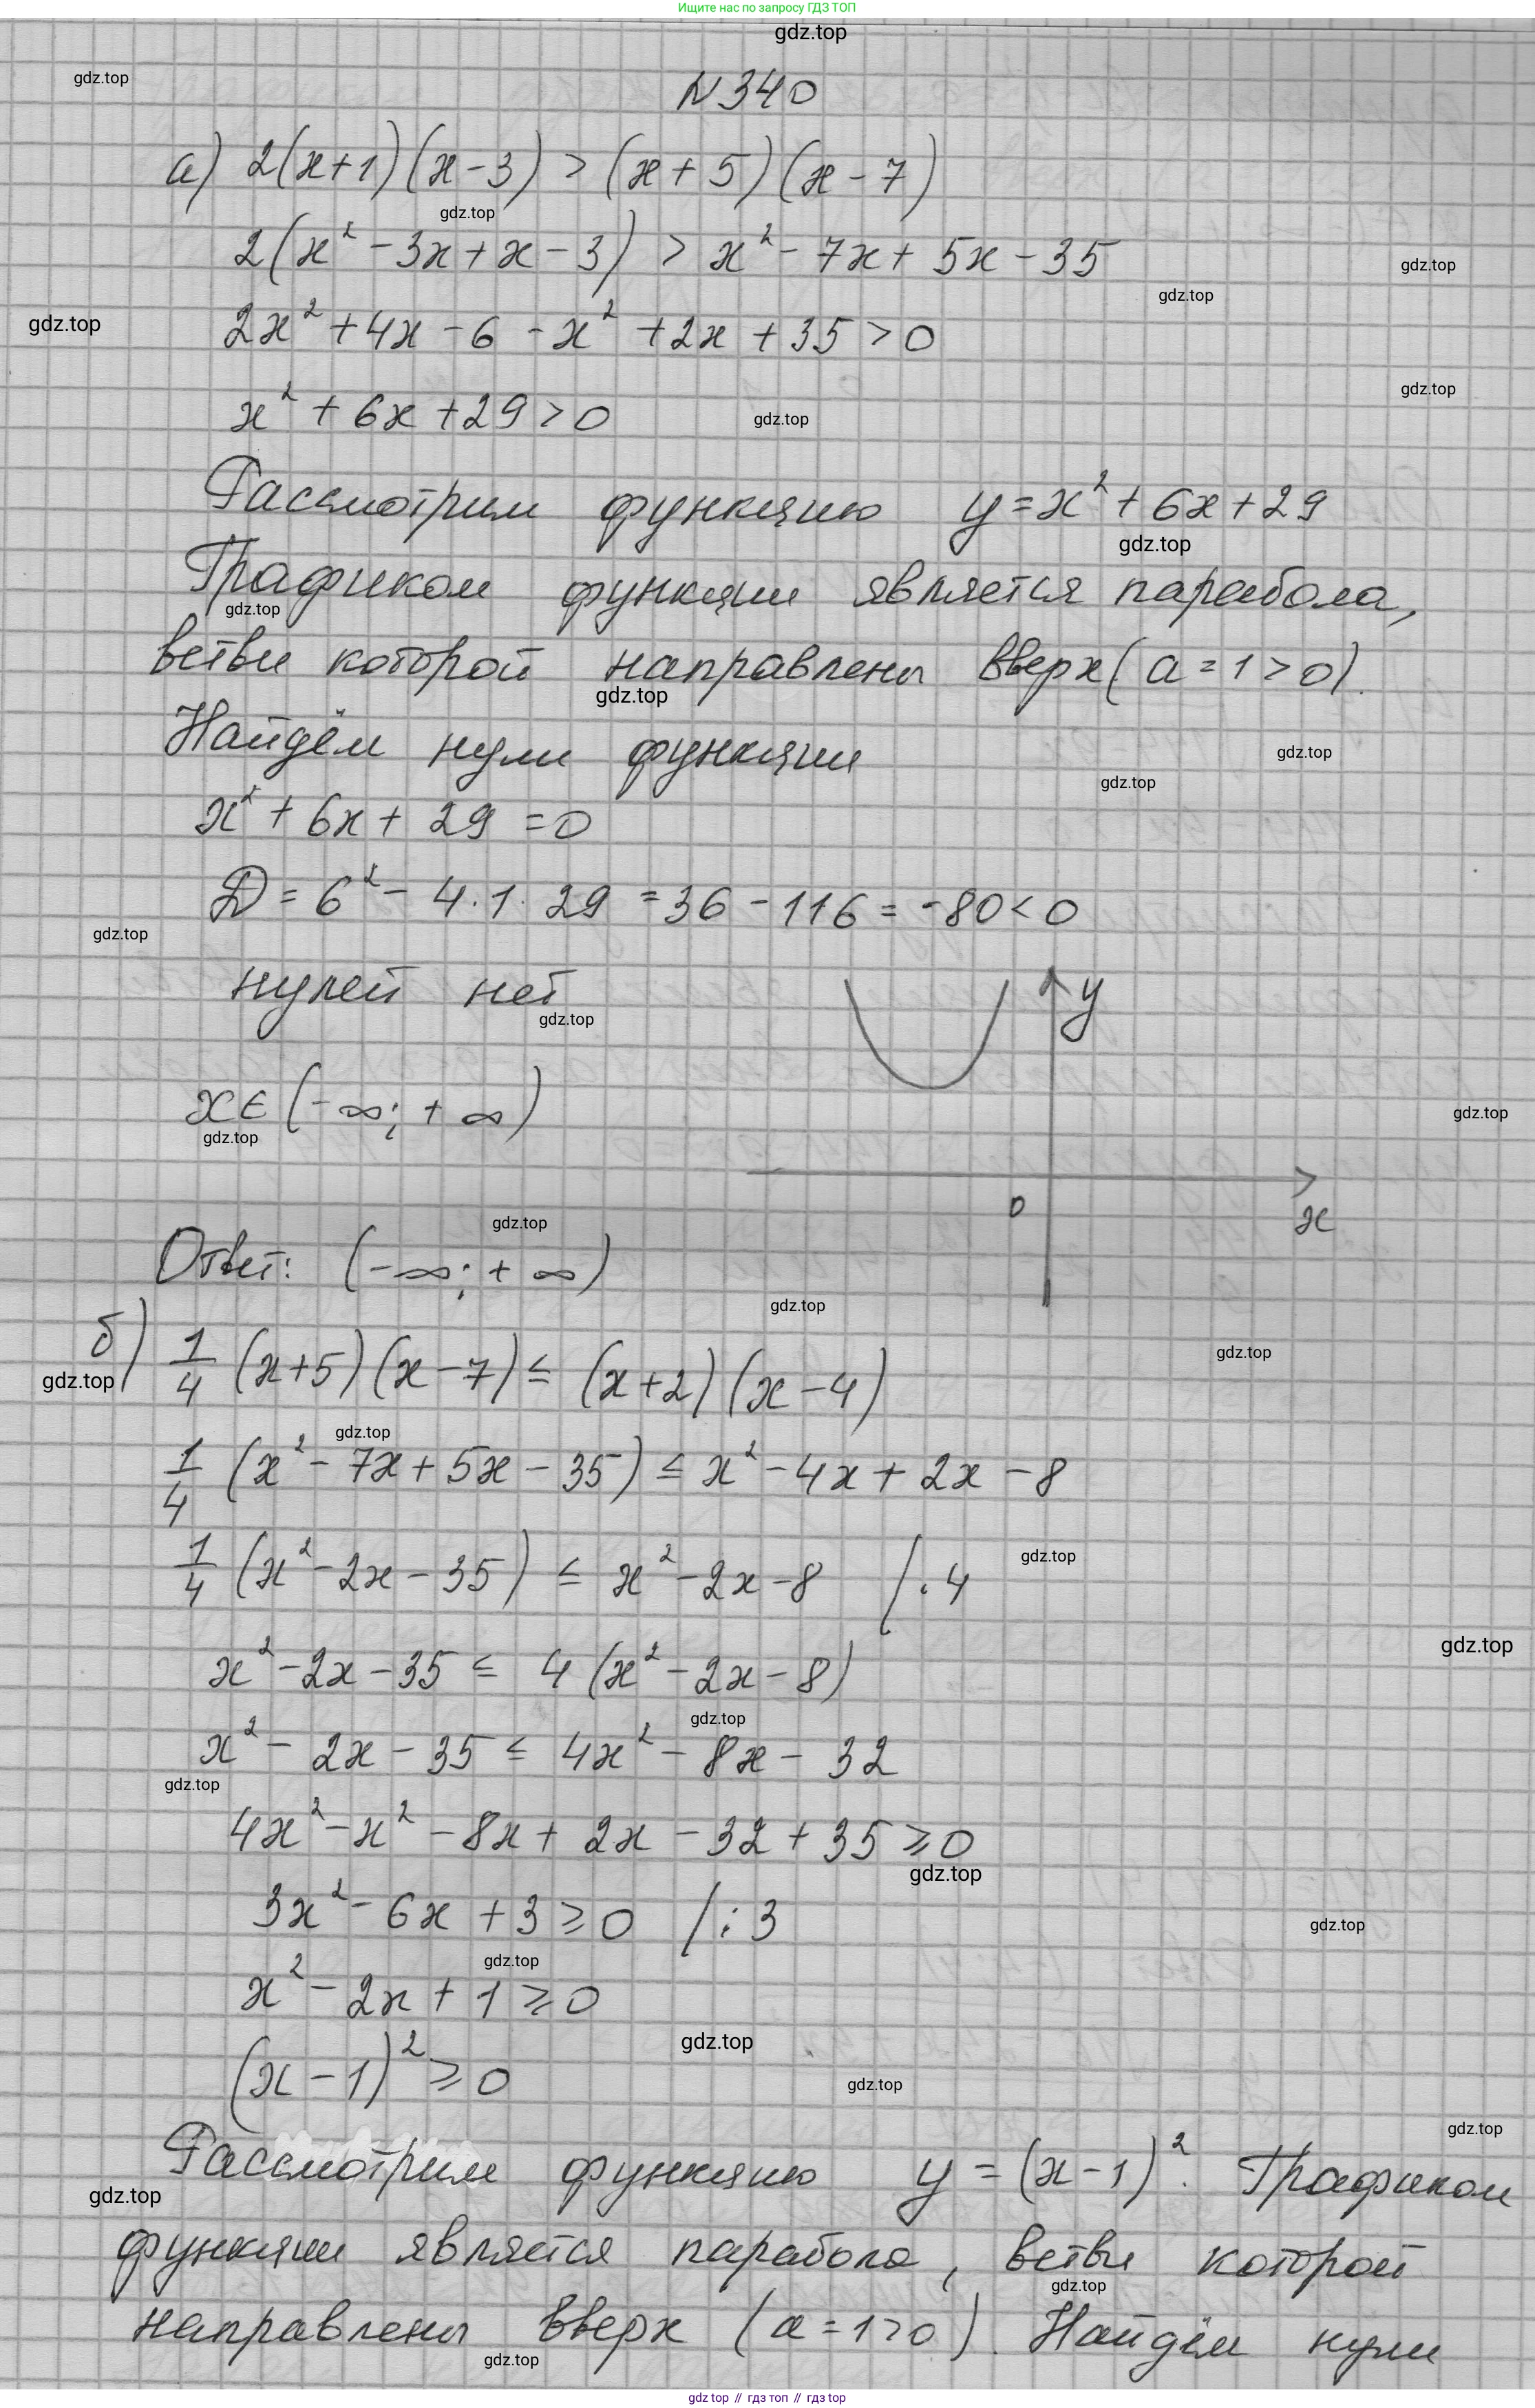 Ищите нас по запросу ГДЗ ТОП
gdz.top
gdz.top
N 340
а) 2(x+1)(x-3) > (x+5)(x-7)
gdz.top
2(x² - 3x + x - 3) > x² - 7x + 5x - 35
gdz.top
gdz.top
gdz.top
2x² + 4x - 6 - x² + 2x + 35 > 0
gdz.top
x² + 6x + 29 > 0
gdz.top
Рассмотрим функцию y = x² + 6x + 29
gdz.top
Графиком функции является парабола,
gdz.top
ветви которой направлены вверх (a = 1 > 0).
gdz.top
Найдём нули функции
gdz.top
gdz.top
x² + 6x + 29 = 0
D = 6² - 4·1·29 = 36 - 116 = -80 < 0
gdz.top
нулей нет
y
gdz.top
x ∈ (-∞; +∞)
gdz.top
gdz.top
0
x
gdz.top
Ответ: (-∞; +∞)
gdz.top
б) 1/4 (x+5)(x-7) ≤ (x+2)(x-4)
gdz.top
gdz.top
gdz.top
1/4 (x² - 7x + 5x - 35) ≤ x² - 4x + 2x - 8
gdz.top
1/4 (x² - 2x - 35) ≤ x² - 2x - 8 /·4
gdz.top
x² - 2x - 35 ≤ 4(x² - 2x - 8)
gdz.top
x² - 2x - 35 ≤ 4x² - 8x - 32
gdz.top
4x² - x² - 8x + 2x - 32 + 35 ≥ 0
gdz.top
3x² - 6x + 3 ≥ 0 /:3
gdz.top
gdz.top
x² - 2x + 1 ≥ 0
gdz.top
(x - 1)² ≥ 0
gdz.top
gdz.top
Рассмотрим функцию y = (x-1)². Графиком
gdz.top
функции является парабола, ветви которой
gdz.top
направлены вверх (a = 1 > 0). Найдём нули
gdz.top
gdz top // гдз топ // gdz top